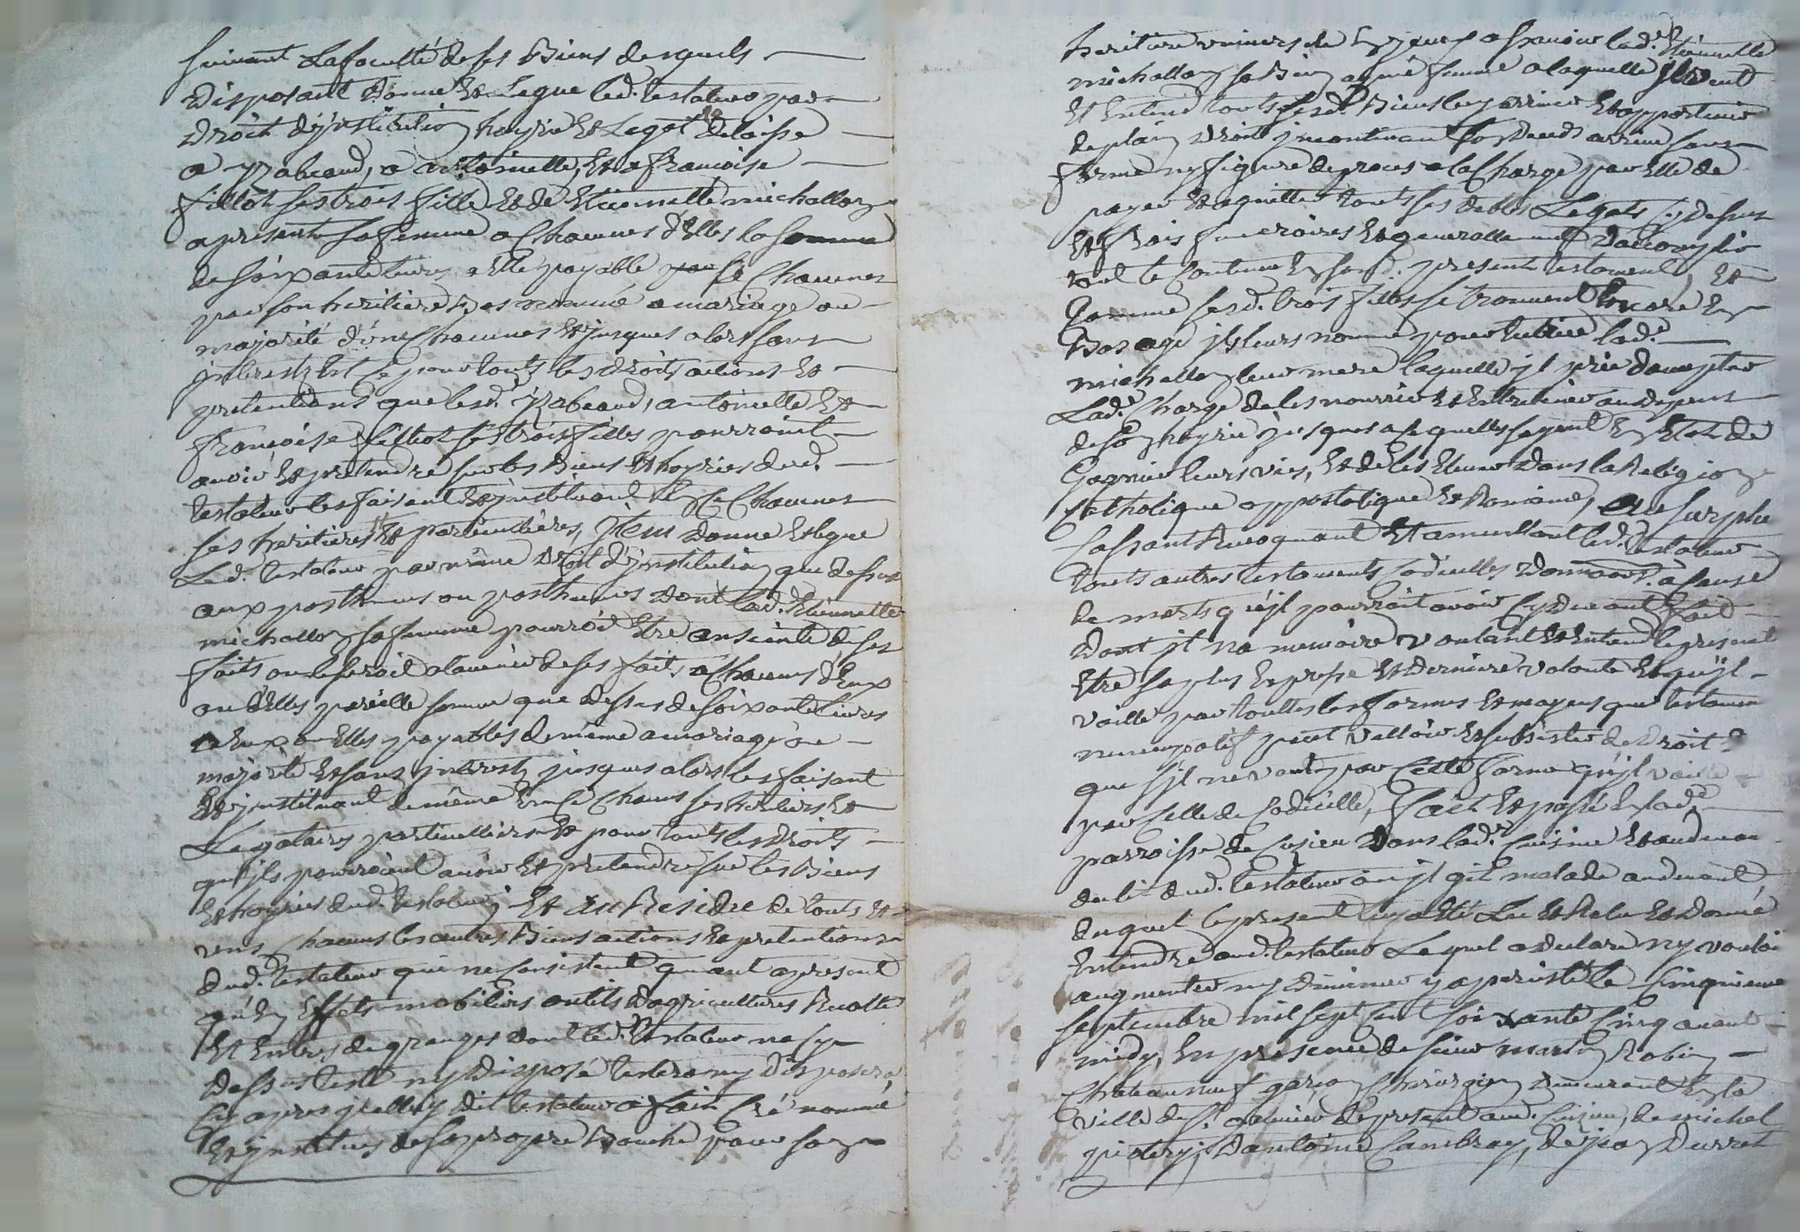 suivant la faculté de ses biens desquels
disposant donne et legue led. testateur par
droit d'jnstitution hoyrie et legat delaisse
a yzabeaud, a antoinette, et a francoise
filliot ses trois filles et de etiennette michallon
a present sa femme a chacunes d'elles la somme
de soixante livres a elle payable par sa
par son heritiere bas nommée a mariage ou
majorité d'une chacunes et jusques alors sans
jnterestz et ce pour touts les droits actions et
pretentions que lesd. yzabeaud, antoinette et
francoise filliot ses trois filles pourroint
avoir et pretendre sur les biens et hoyries dud.
testateur les faisant et jnstituant en ce chacunes
ses heritieres et particullieres, jtem donne et legue
led. testateur par même droit d'jnstitution que dessus
aux posthumes ou posthumes dont lad. etiennette
michallon sa femme pourroit etre anseinte de ses
faits ou le seroit a l'avenir de ses faits a chacuns d'eux
ou d'elles pareille somme que dessus de soixante livres
a eux ou elles payables de même a mariage ou
majorité et sans jnterestz jusques alors les faisant
et jnstituant de même en ce chacuns ses heritiers et
legataires particulliers et pour touts les droits
qu'jls pourroient avoir et pretendre sur les biens
et hoyries dud. testateur, et au residu de touts et
uns chacuns les autres biens actions et pretentions
dud. testateur qui ne consistent quant a present
qu'en effets mobiliers outils d'agricultures recolte
et entrés de granges dont led. testateur na cy
dessus testé ny disposé testera ny disposera
cy apres jcelluy dit testateur a fait cré nommé
et jnstitué de sa propre bouche pour son
heritiere universelle en jceux a sçavoir lad. etiennette
michallon sa bien aymé femme a laquelle jl veut
et entend touts sesd. biens luy arriver et appartenir
de plain droit jncontinant son deced arrivé sans
forme ny figure de proces a la charge par elle de
payer et aquitter touts ses debtes legats cy dessus
et frais funeraires et generallement d'accomplir
tout le contenu en sond. present testament, et
comme sesd. trois filles se trouvent encore en
bas age jl leurs nomme pour tutrice lad.
michallon leur mere laquelle jl prie d'accepter
lad. charge de les nourrir et entretenir aux depens
de son hoyrie jusques a ce quelles soyent en etat de
gagner leurs vies, et de les elever dans la religion
catholique appostolique et romaine, au surplus
cassant revoquant et annullant led. testateur
touts autres testaments codicilles donnaons. a cause
de morts qu'jl pourroit avoir cy devant fait
dont jl na memoire voulant et entend le present
etre sa plus expresse et derniere volonté et qu'jl
vaille par touttes les formes et moyens que testament
nuncupatif peut valloir et subsister de droit
que s'jl ne vaut par cette forme qu'jl vaille
par celle de codicille, fait et passé en lad.
parroisse de cuzieu dans lad. cuisine et au devant
du lit dud. testateur ou jl git malade au devant
duquel le present luy a eté leu et relu et donné
entendre aud. testateur lequel a declaré ny vouloir
augmenter ny diminuer y a persisté le cinquieme
septembre mil sept cent soixante cinq avant
midy, en presence de sieur martin robin
chateauneuf garçon chirurgien demeurant en la
ville de st. galmier de present aud. cuzieu, de michel
d'antoine cambray, de jean durret